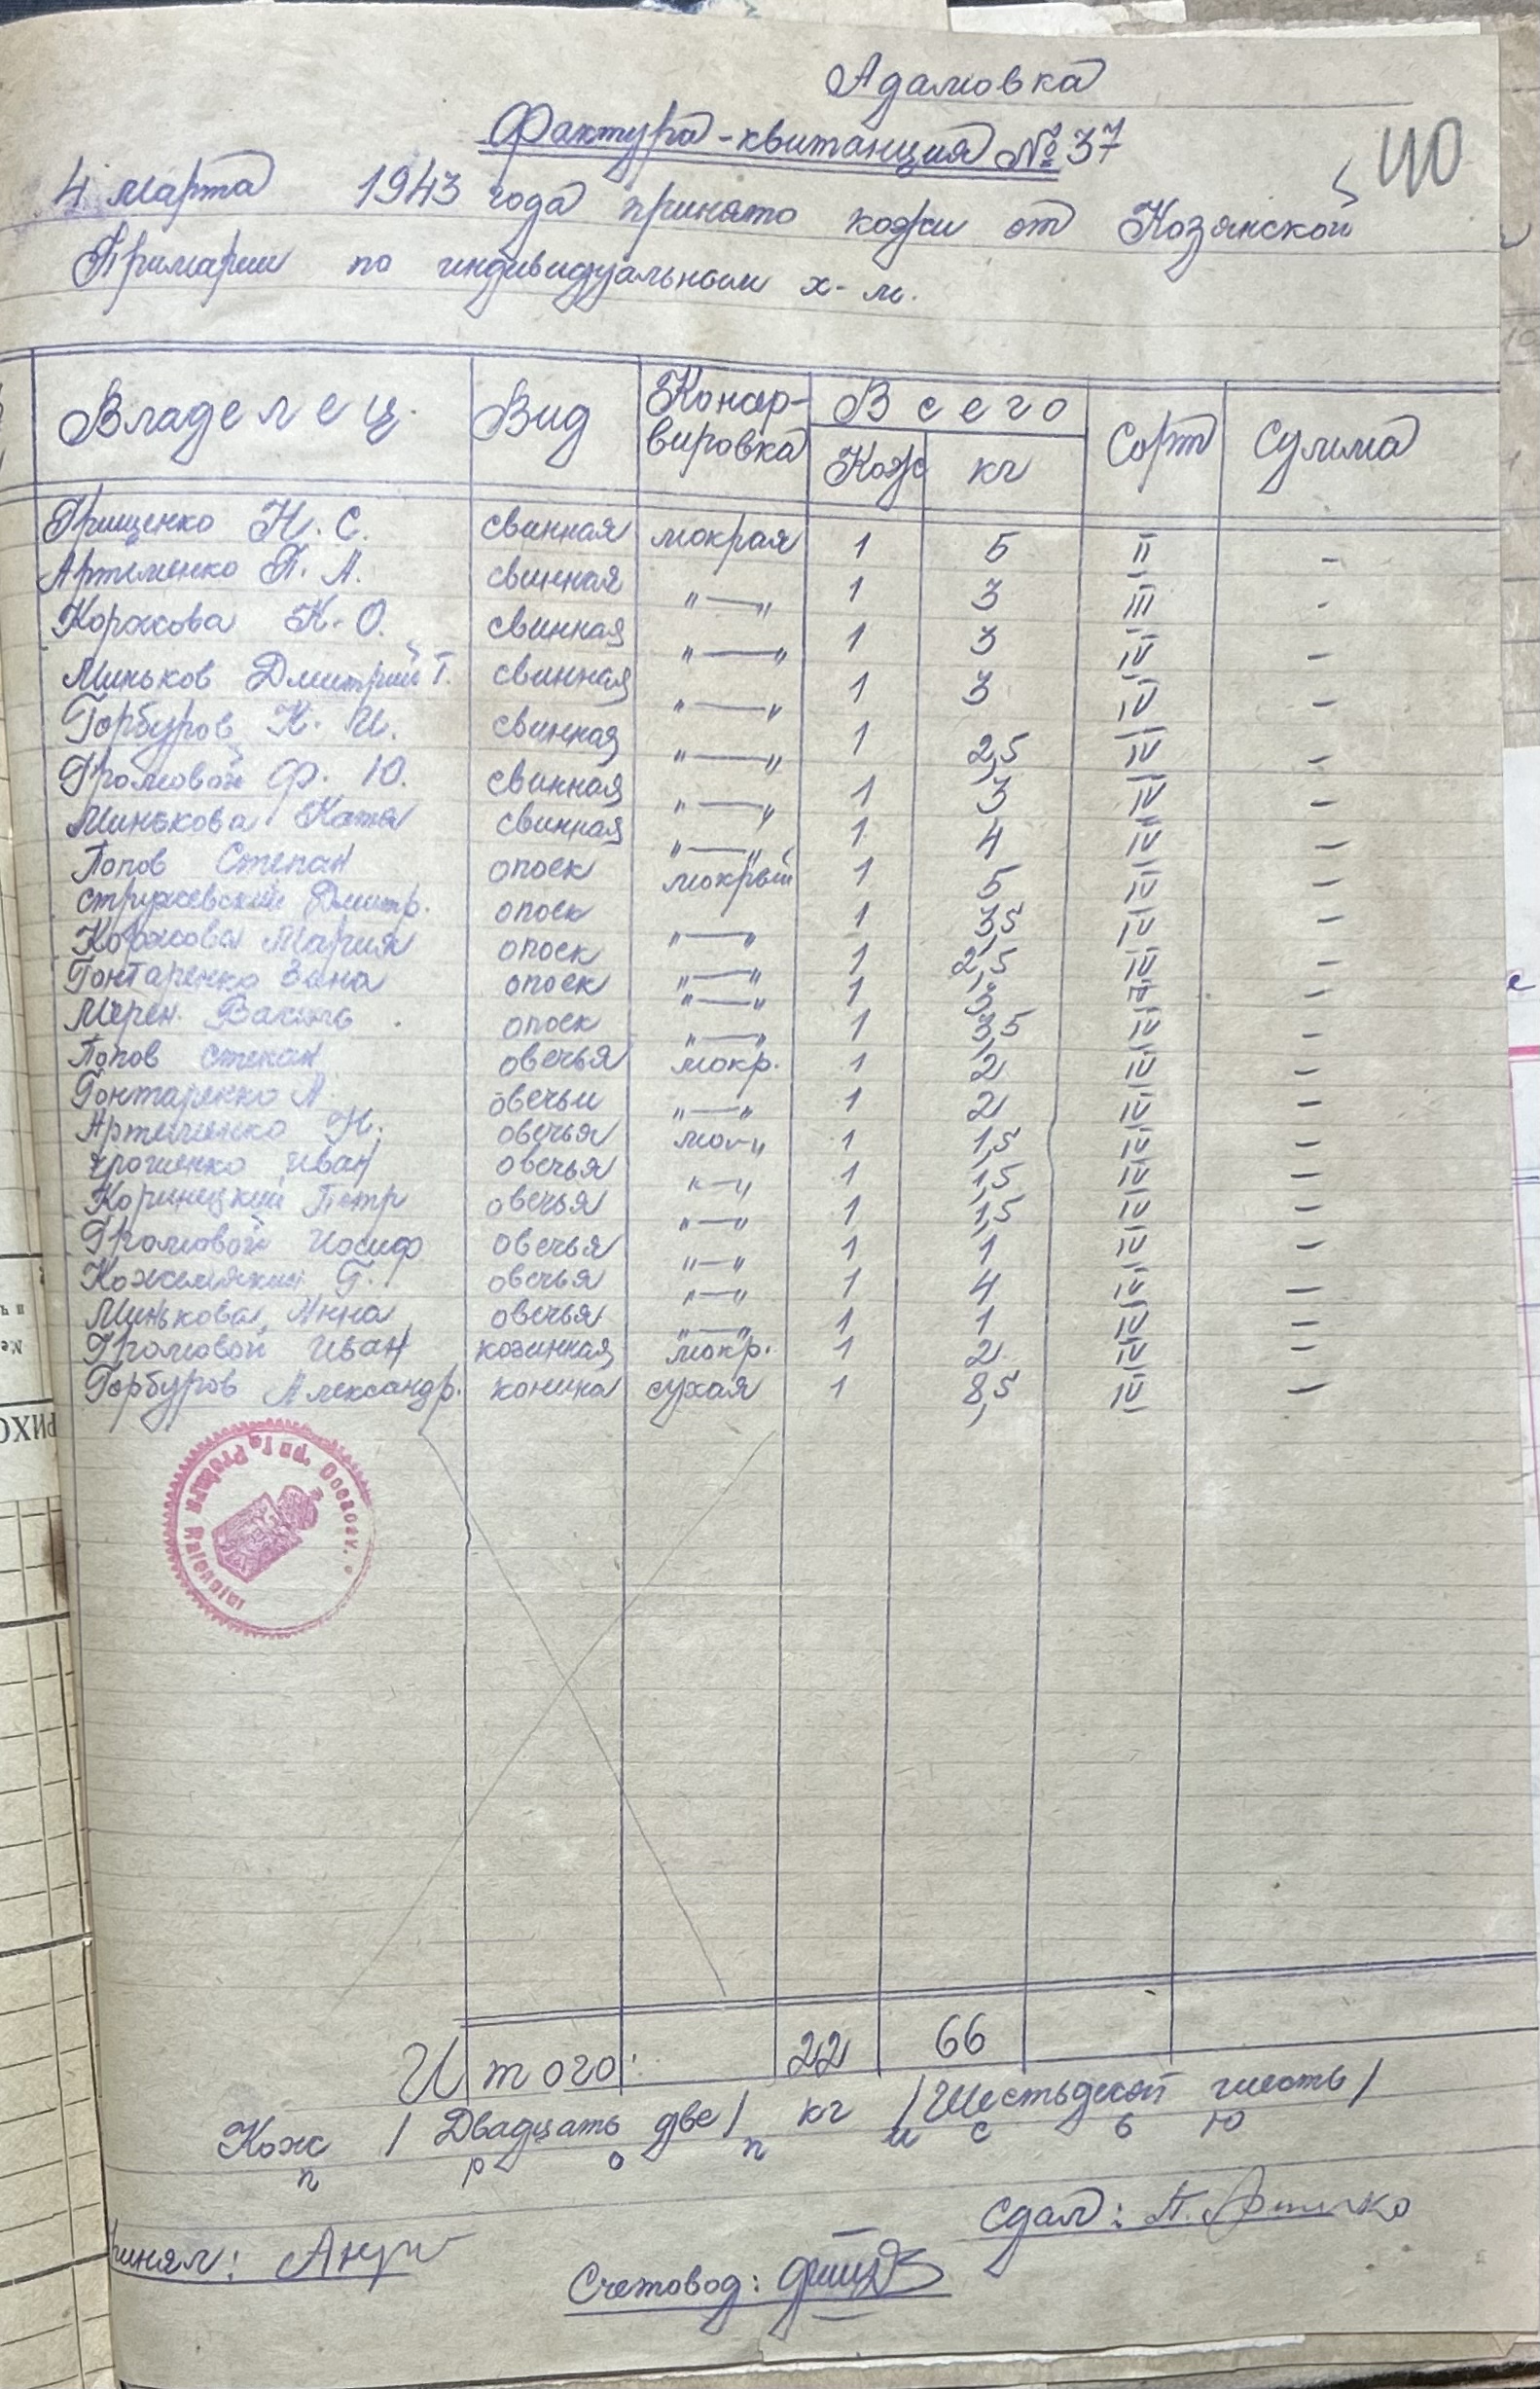 Адамовка
Фактура-квитанция № 37
40
4 марта 1943 года принято кожи от Козянской
Примарии по индивидуальным х-м.
Владелец. Вид Консер- Всего Сорт Сумма
вировка Кож кг
Грищенко Н. С. свинная мокрая 1 5 II -
Артеменко П. А. свинная "—" 1 3 III -
Коржова К. О. свинная "—" 1 3 IV -
Миньков Дмитрий Г. свинная "—" 1 3 IV -
Горбуров К. И. свинная "—" 1 2,5 IV -
Громовой Ф. Ю. свинная "—" 1 3 IV -
Минькова Катя свинная "—" 1 4 IV -
Попов Степан опоек мокрый 1 5 IV -
Стружевский Дмитр. опоек 1 3,5 IV -
Коржова Мария опоек "—" 1 2,5 IV -
Гонтаренко опоек "—" 1 3 IV -
Мерен. опоек "—" 1 3,5 IV -
Попов Степан овечья мокр. 1 2 IV -
Гонтаренко А. овечьи "—" 1 2 IV -
Артеменко Н. овечья мо-" 1 1,5 IV -
Ярошенко Иван овечья "—" 1 1,5 IV -
Кориницкий Петр овечья "—" 1 1,5 IV -
Громовой Иосиф овечья "—" 1 1 IV -
Кожемякин Г. овечья "—" 1 4 IV -
Минькова Анна овечья "—" 1 1 IV -
Громовой Иван козинная мокр. 1 2 IV -
Горбуров Александр. конина сухая 1 8,5 IV -
Итого: 22 66
Кож /Двадцать две/ кг /Шестьдесят шесть/
п р о п и с ь ю
Сдал: П.
инял:
Счетовод: